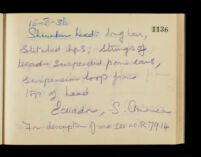 15-2-36
1136
Shrunken head: long hair,
stitched lips; strings of
beads suspended from ears,
suspension loop from
top of head
Ecuador, S. America
For description of use see no. R.7914